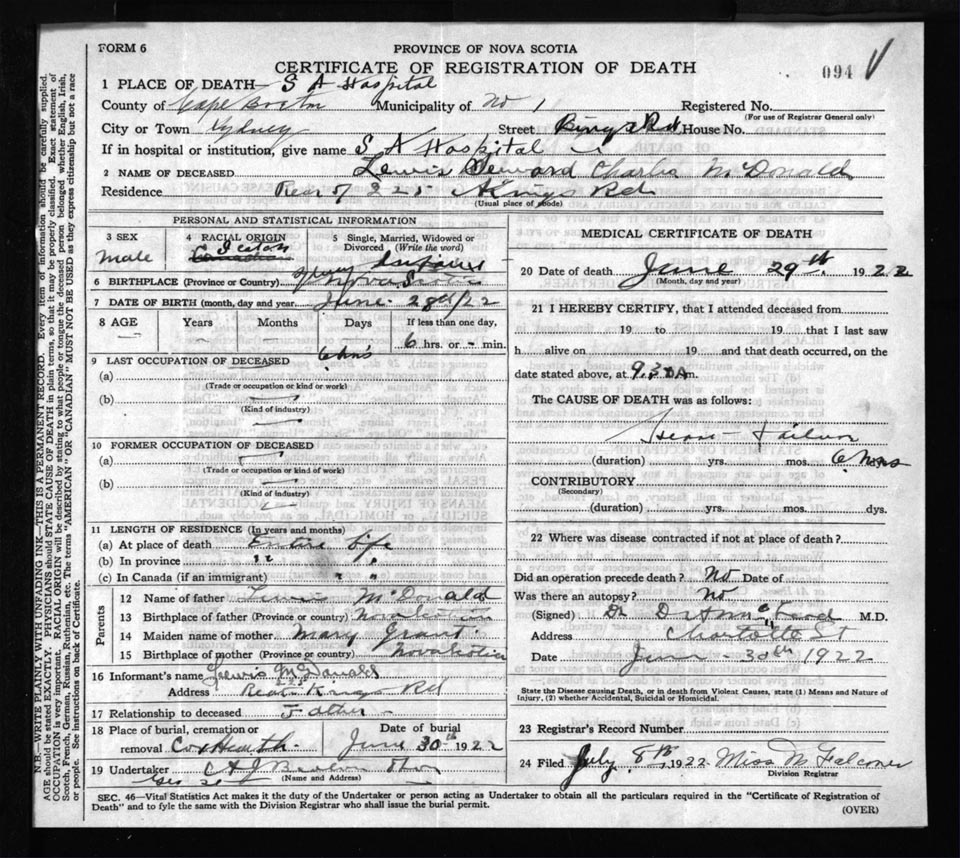 FORM 6
PROVINCE OF NOVA SCOTIA
CERTIFICATE OF REGISTRATION OF DEATH
094 V
1 PLACE OF DEATH S A Hospital
County of Cape Breton Municipality of No 1 Registered No.
(For use of Registrar General only)
City or Town Sydney Street Kings Rd. House No.
If in hospital or institution, give name S A Hospital
2 NAME OF DECEASED Lewis Charles McDonald
Residence Rear of 225 Kings Rd
(Usual place of abode)
PERSONAL AND STATISTICAL INFORMATION
3 SEX 4 RACIAL ORIGIN 5 Single, Married, Widowed or Divorced (Write the word)
male Scotch Canadian
6 BIRTHPLACE (Province or Country) Sydney Nova Scotia
7 DATE OF BIRTH (month, day and year) June 28th/22
8 AGE Years Months Days If less than one day,
6 hrs. or - min.
6 hrs
9 LAST OCCUPATION OF DECEASED
(a)
(Trade or occupation or kind or work)
(b)
(Kind of industry)
10 FORMER OCCUPATION OF DECEASED
(a)
(Trade or occupation or kind of work)
(b)
(Kind of industry)
11 LENGTH OF RESIDENCE (In years and months)
(a) At place of death Entire life
(b) In province " "
(c) In Canada (if an immigrant) " "
Parents
12 Name of father Lewis McDonald
13 Birthplace of father (Province or country) Nova Scotia
14 Maiden name of mother Mary Grant
15 Birthplace of mother (Province or country) Nova Scotia
16 Informant's name Lewis McDonald
225
Address Rear Kings Rd
17 Relationship to deceased Father
18 Place of burial, cremation or removal Coxheath Date of burial June 30th 1922
19 Undertaker A J Beaton
(Name and Address)
MEDICAL CERTIFICATE OF DEATH
20 Date of death June 29th. 1922
(Month, day and year)
21 I HEREBY CERTIFY, that I attended deceased from
19 to 19 that I last saw
h alive on 19 and that death occurred, on the
date stated above, at 9.30 A m.
The CAUSE OF DEATH was as follows:
Heart Failure
(duration) yrs. mos. 6 hrs
CONTRIBUTORY
(Secondary)
(duration) yrs. mos. dys.
22 Where was disease contracted if not at place of death?
Did an operation precede death? No Date of
Was there an autopsy? No
(Signed) Dr M.D.
Address Charlotte St
Date June - 30th 1922
State the Disease causing Death, or in death from Violent Causes, state (1) Means and Nature of
Injury, (2) whether Accidental, Suicidal or Homicidal.
23 Registrar's Record Number
24 Filed July 8th 1922 Miss M Falconer
Division Registrar
SEC. 46—Vital Statistics Act makes it the duty of the Undertaker or person acting as Undertaker to obtain all the particulars required in the "Certificate of Registration of
Death" and to fyle the same with the Division Registrar who shall issue the burial permit.
(OVER)
N.B.—WRITE PLAINLY WITH UNFADING INK—THIS IS A PERMANENT RECORD. Every item of information should be carefully supplied.
AGE should be stated EXACTLY. PHYSICIANS should STATE CAUSE OF DEATH in plain terms, so that it may be properly classified. Exact statement of
OCCUPATION is very important. RACIAL ORIGIN will be described by stating to what people or tongue the deceased person belonged whether English, Irish,
Scotch, French, German, Russian, Ruthenian, etc. The terms "AMERICAN" OR "CANADIAN" MUST NOT BE USED as they express citizenship but not a race
or people. See instructions on back of Certificate.